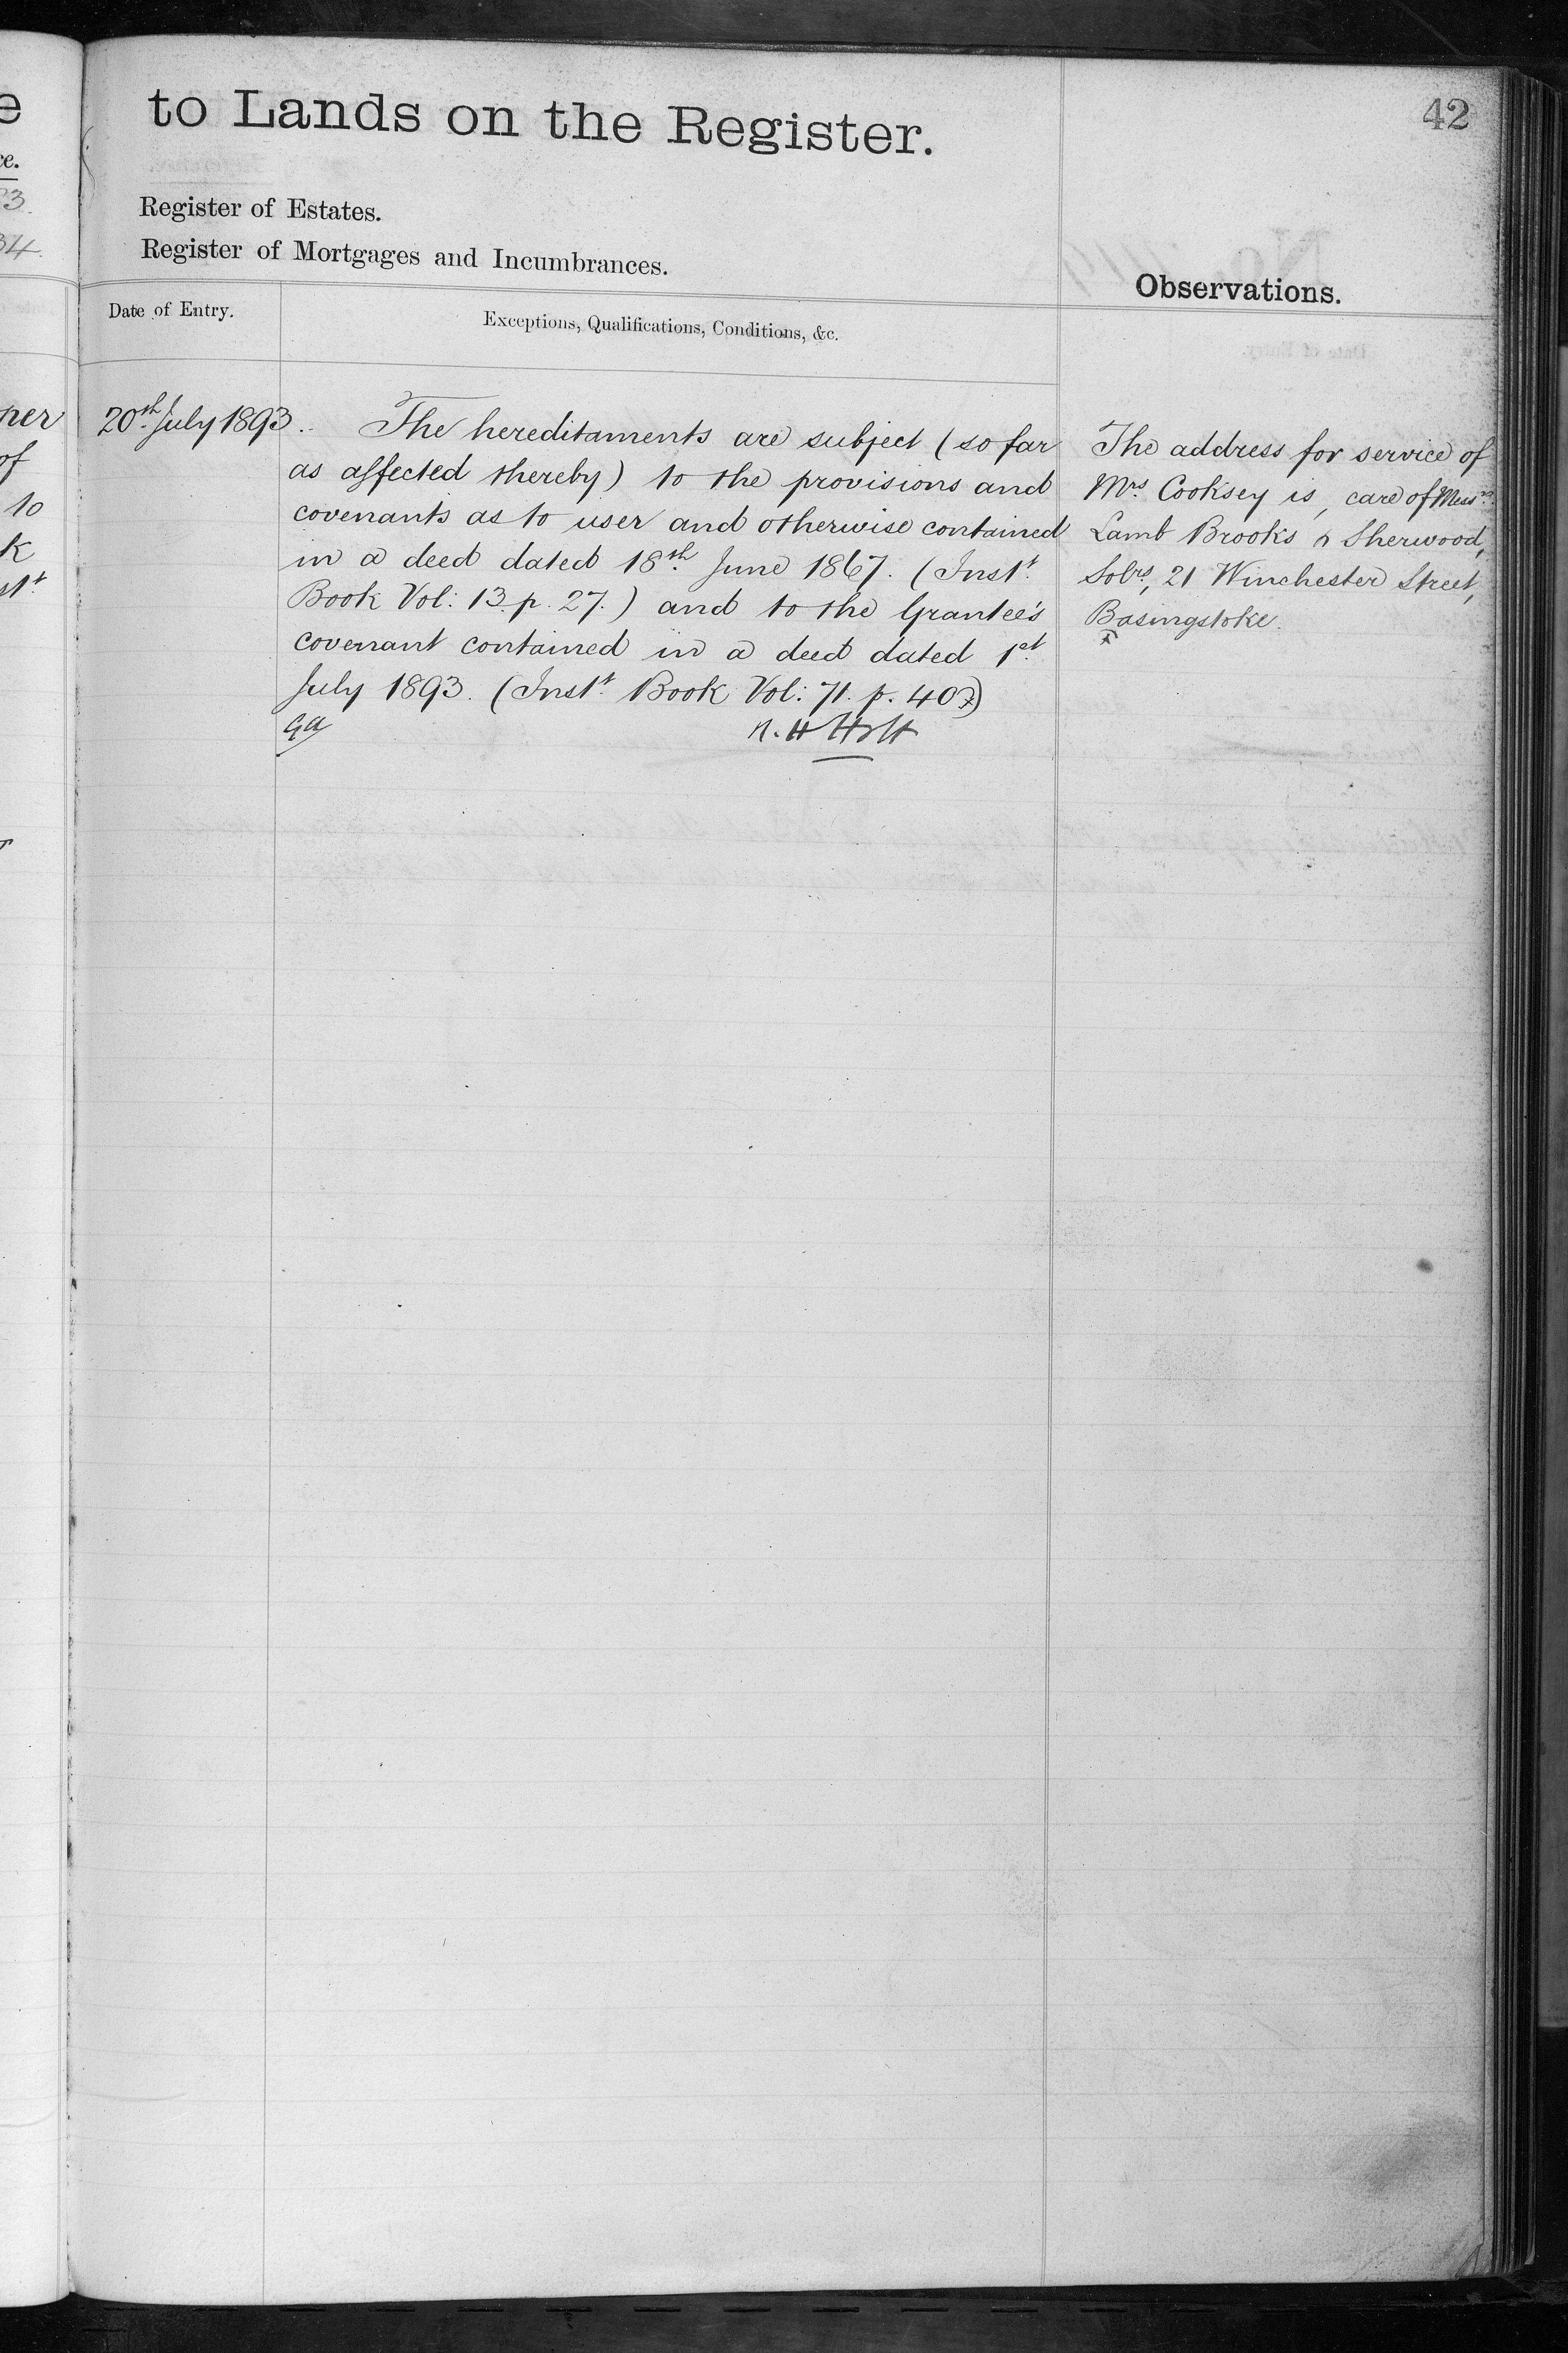 to Lands on the Register.
42
Register of Estates.
Register of Mortgages and Incumbrances.
Observations.
Date of Entry.
Exceptions, Qualifications, Conditions, &c.
20th July 1893.
The hereditaments are subject (so far
as affected thereby) to the provisions and
covenants as to user and otherwise contained
in a deed dated 18th June 1867. (Inst.
Book Vol: 13. p. 27.) and to the Grantee's
covenant contained in a deed dated 1st
July 1893. (Inst. Book Vol: 71. p. 407)
The address for service of
Mrs Cooksey is, care of Messrs
Lamb Brooks & Sherwood,
Solrs, 21 Winchester Street,
Basingstoke.